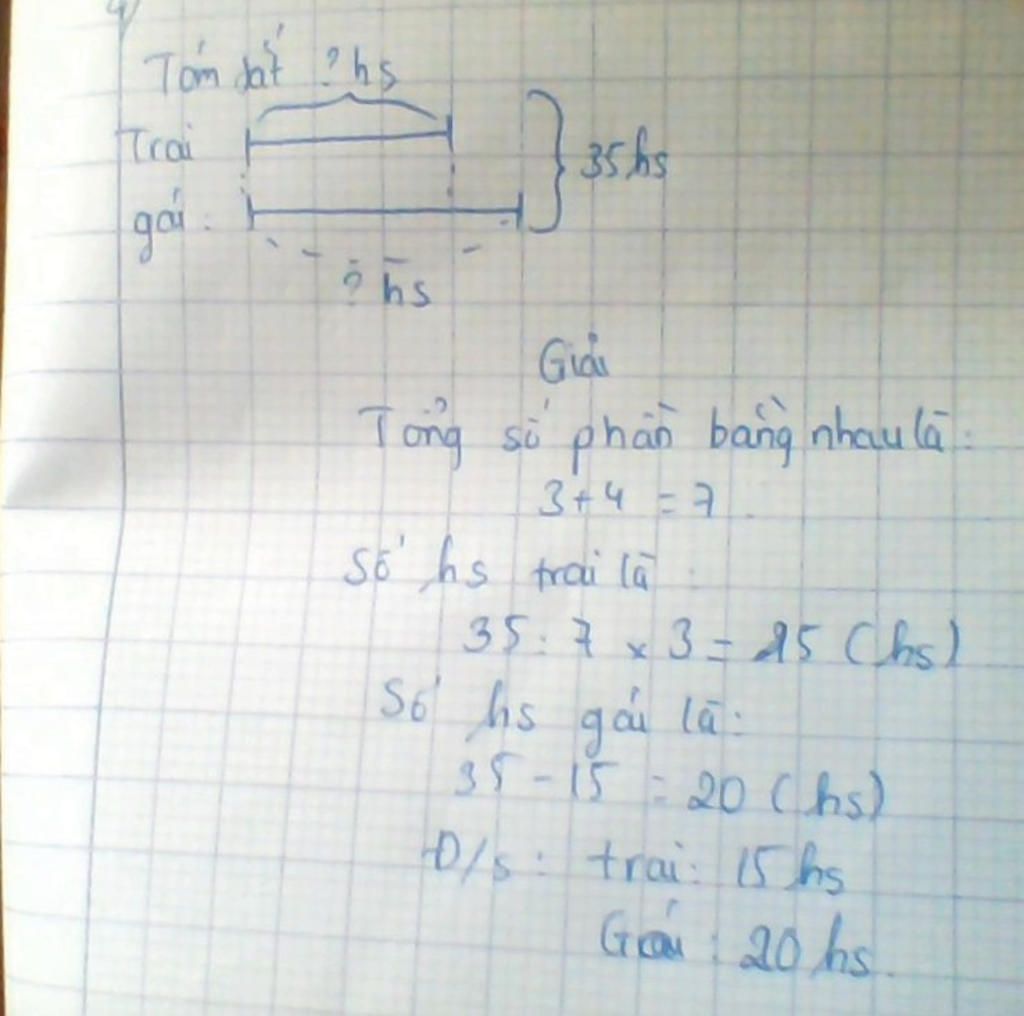 4/
Tóm tắt ? hs
Trai
gái :
35 hs
? hs
Giải
Tổng số phần bằng nhau là :
3 + 4 = 7
Số hs trai là :
35 : 7 x 3 = 15 (hs)
Số hs gái là :
35 - 15 = 20 (hs)
Đ/s : trai : 15 hs
Gái : 20 hs.